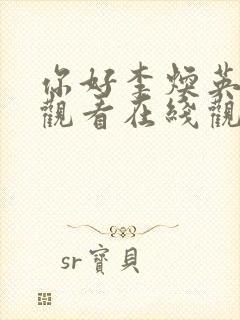 你好李煥英
觀看在綫觀
sr寶貝